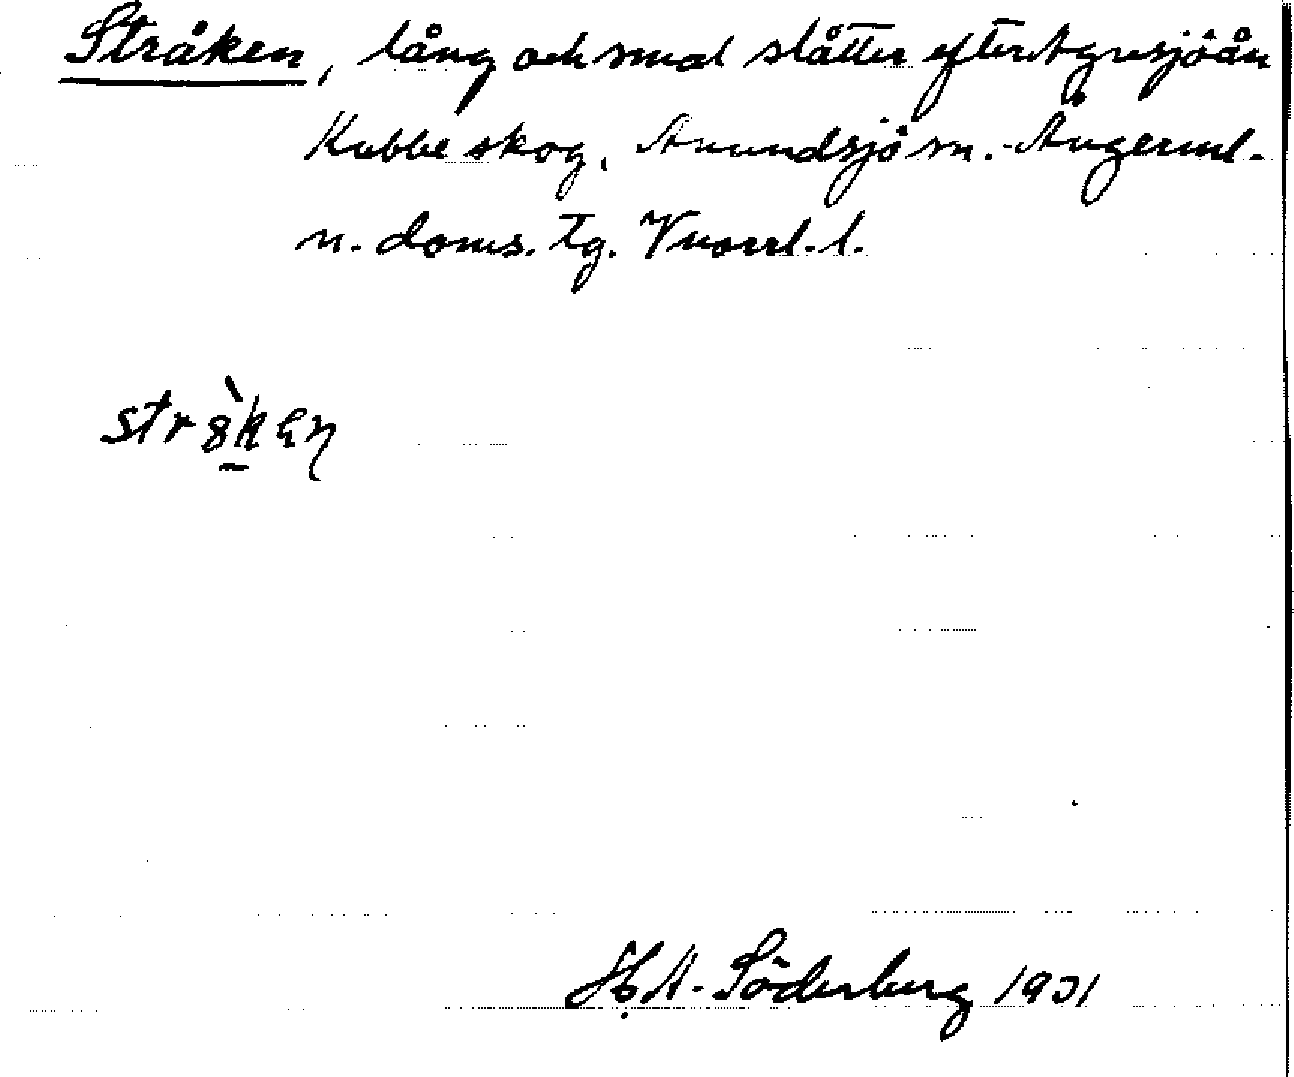 Stråken, lång och smal slåtter efter Agnsjöån
Kubbe skog, Anundsjö sn. Ångerml.
n. doms. tg. Västernorrl. l.
H. A. Söderberg 1931